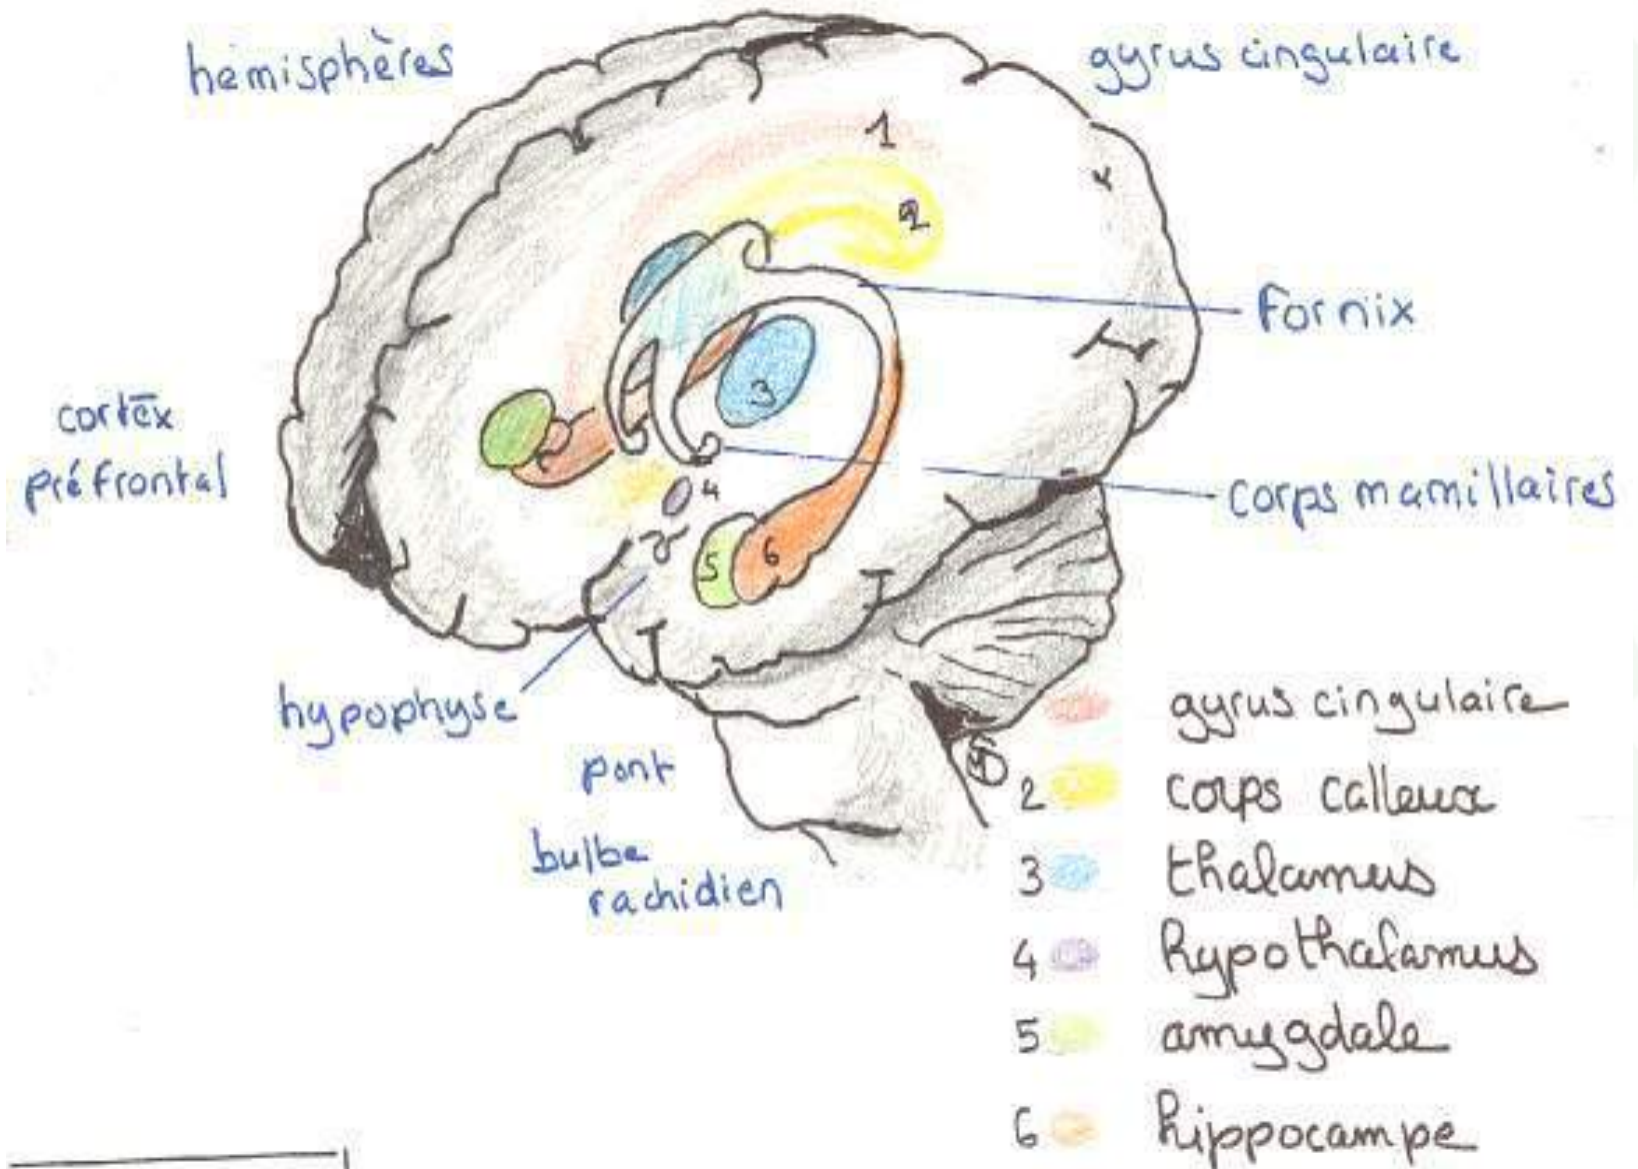 hémisphères
gyrus cingulaire
1
2
fornix
3
cortex
préfrontal
corps mamillaires
4
5
6
hypophyse
pont
bulbe
rachidien
gyrus cingulaire
2 corps calleux
3 thalamus
4 hypothalamus
5 amygdale
6 hippocampe